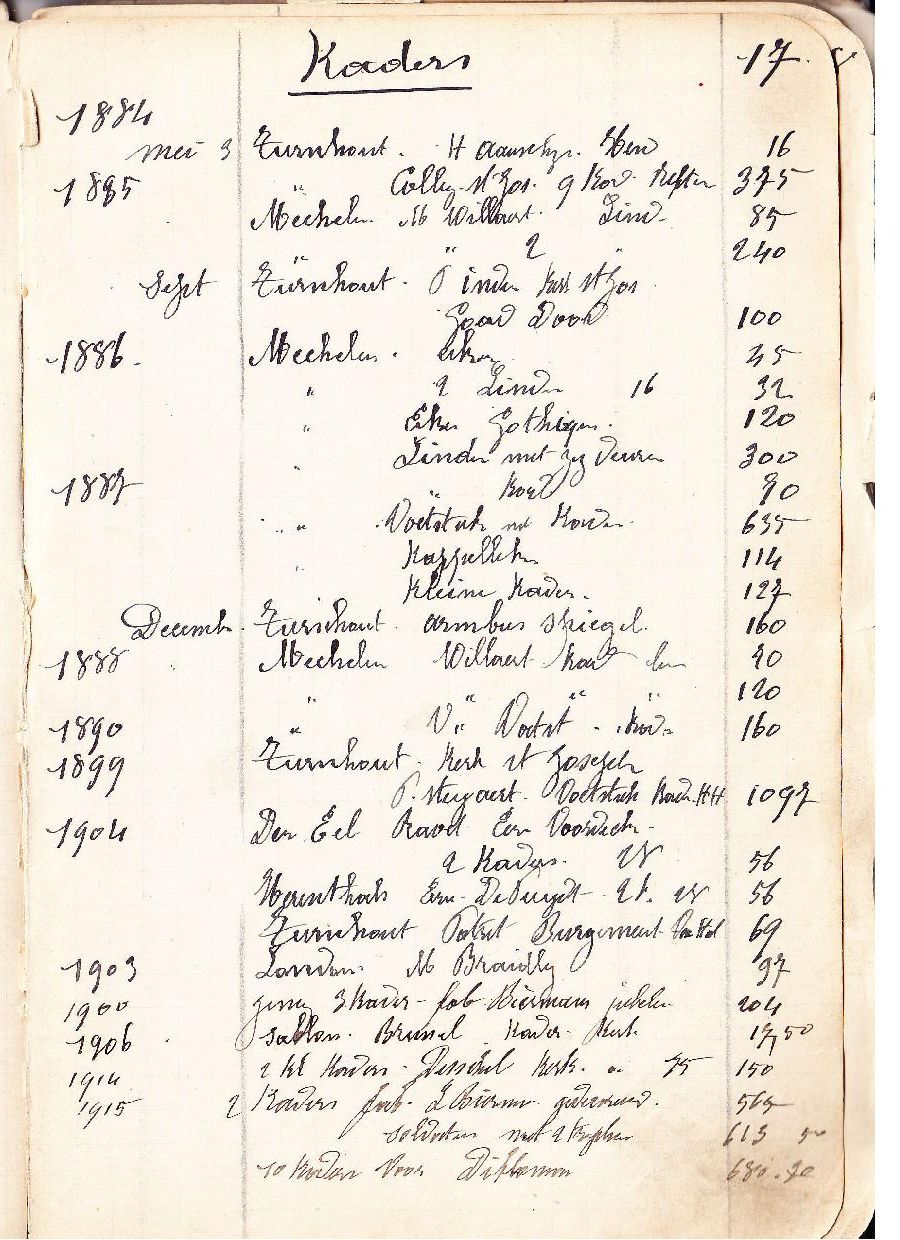 Kaders 17
1884
mei 3 Turnhout. H 16
1885 " Colleg. St Jos. 9 Kad. Refter 375
Mechelen M Willaert. Lind. 85
" " 2 " 240
Sept Turnhout. P inder Kerk St Jos
Goad Dood 100
1886. Mechelen. eiken 45
" 2 Linde 16 32
" Eiken Gothique. 120
" Linden met zij deuren 300
1887 " Koad 90
" " Voetstuk met Kader. 635
" Kappelleken
114
Kleine Kader. 127
Decemb. Turnhout. armbus spiegel. 160
1888 Mechelen Willaert Kad 40
" 120
1890 " V" Voetst". Kad" 160
1899 Turnhout. Kerk St Joseph
P. Voetstuk Kader. HH 1097
1904 Den Eel Ravel Een Voordeh.
2 Kaders. 28 56
Herenthals Een. 2 k. 28 56
Turnhout Potret Burgemeest 69
1903 London. M Braidly 97
1900 3 Kader - fab Biermans jubilee 204
1906 Sablon. Brussel Kader. Kerk 17,50
1914 2 kl Kaders - Desschel Kerk. a 75 150
1915 2 Kaders fab. L Bierm. gedecoreerd. 565
soldaten met 2 613 50
10 Kaders Voor Diploma 680.20